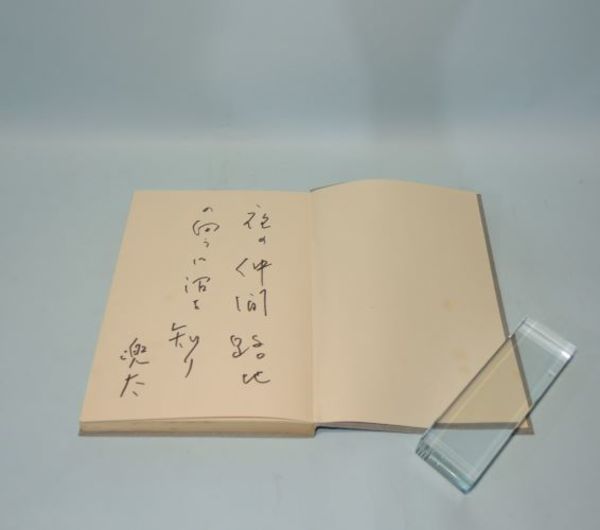 夜の仲間路地
の向うに沼を
知り
兜太